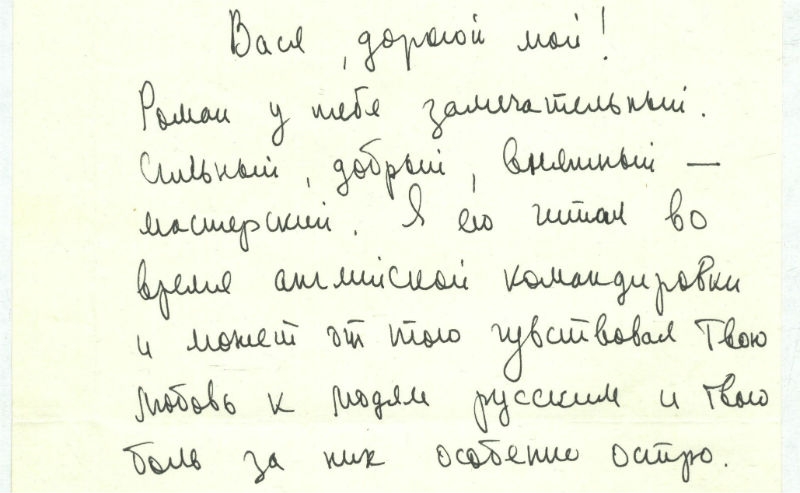 Вася, дорогой мой!
Роман у тебя замечательный.
Сильный, добрый, внятный —
мастерский. Я его читал во
время английской командировки
и может от того чувствовал Твою
любовь к людям русским и твою
боль за них особенно остро.